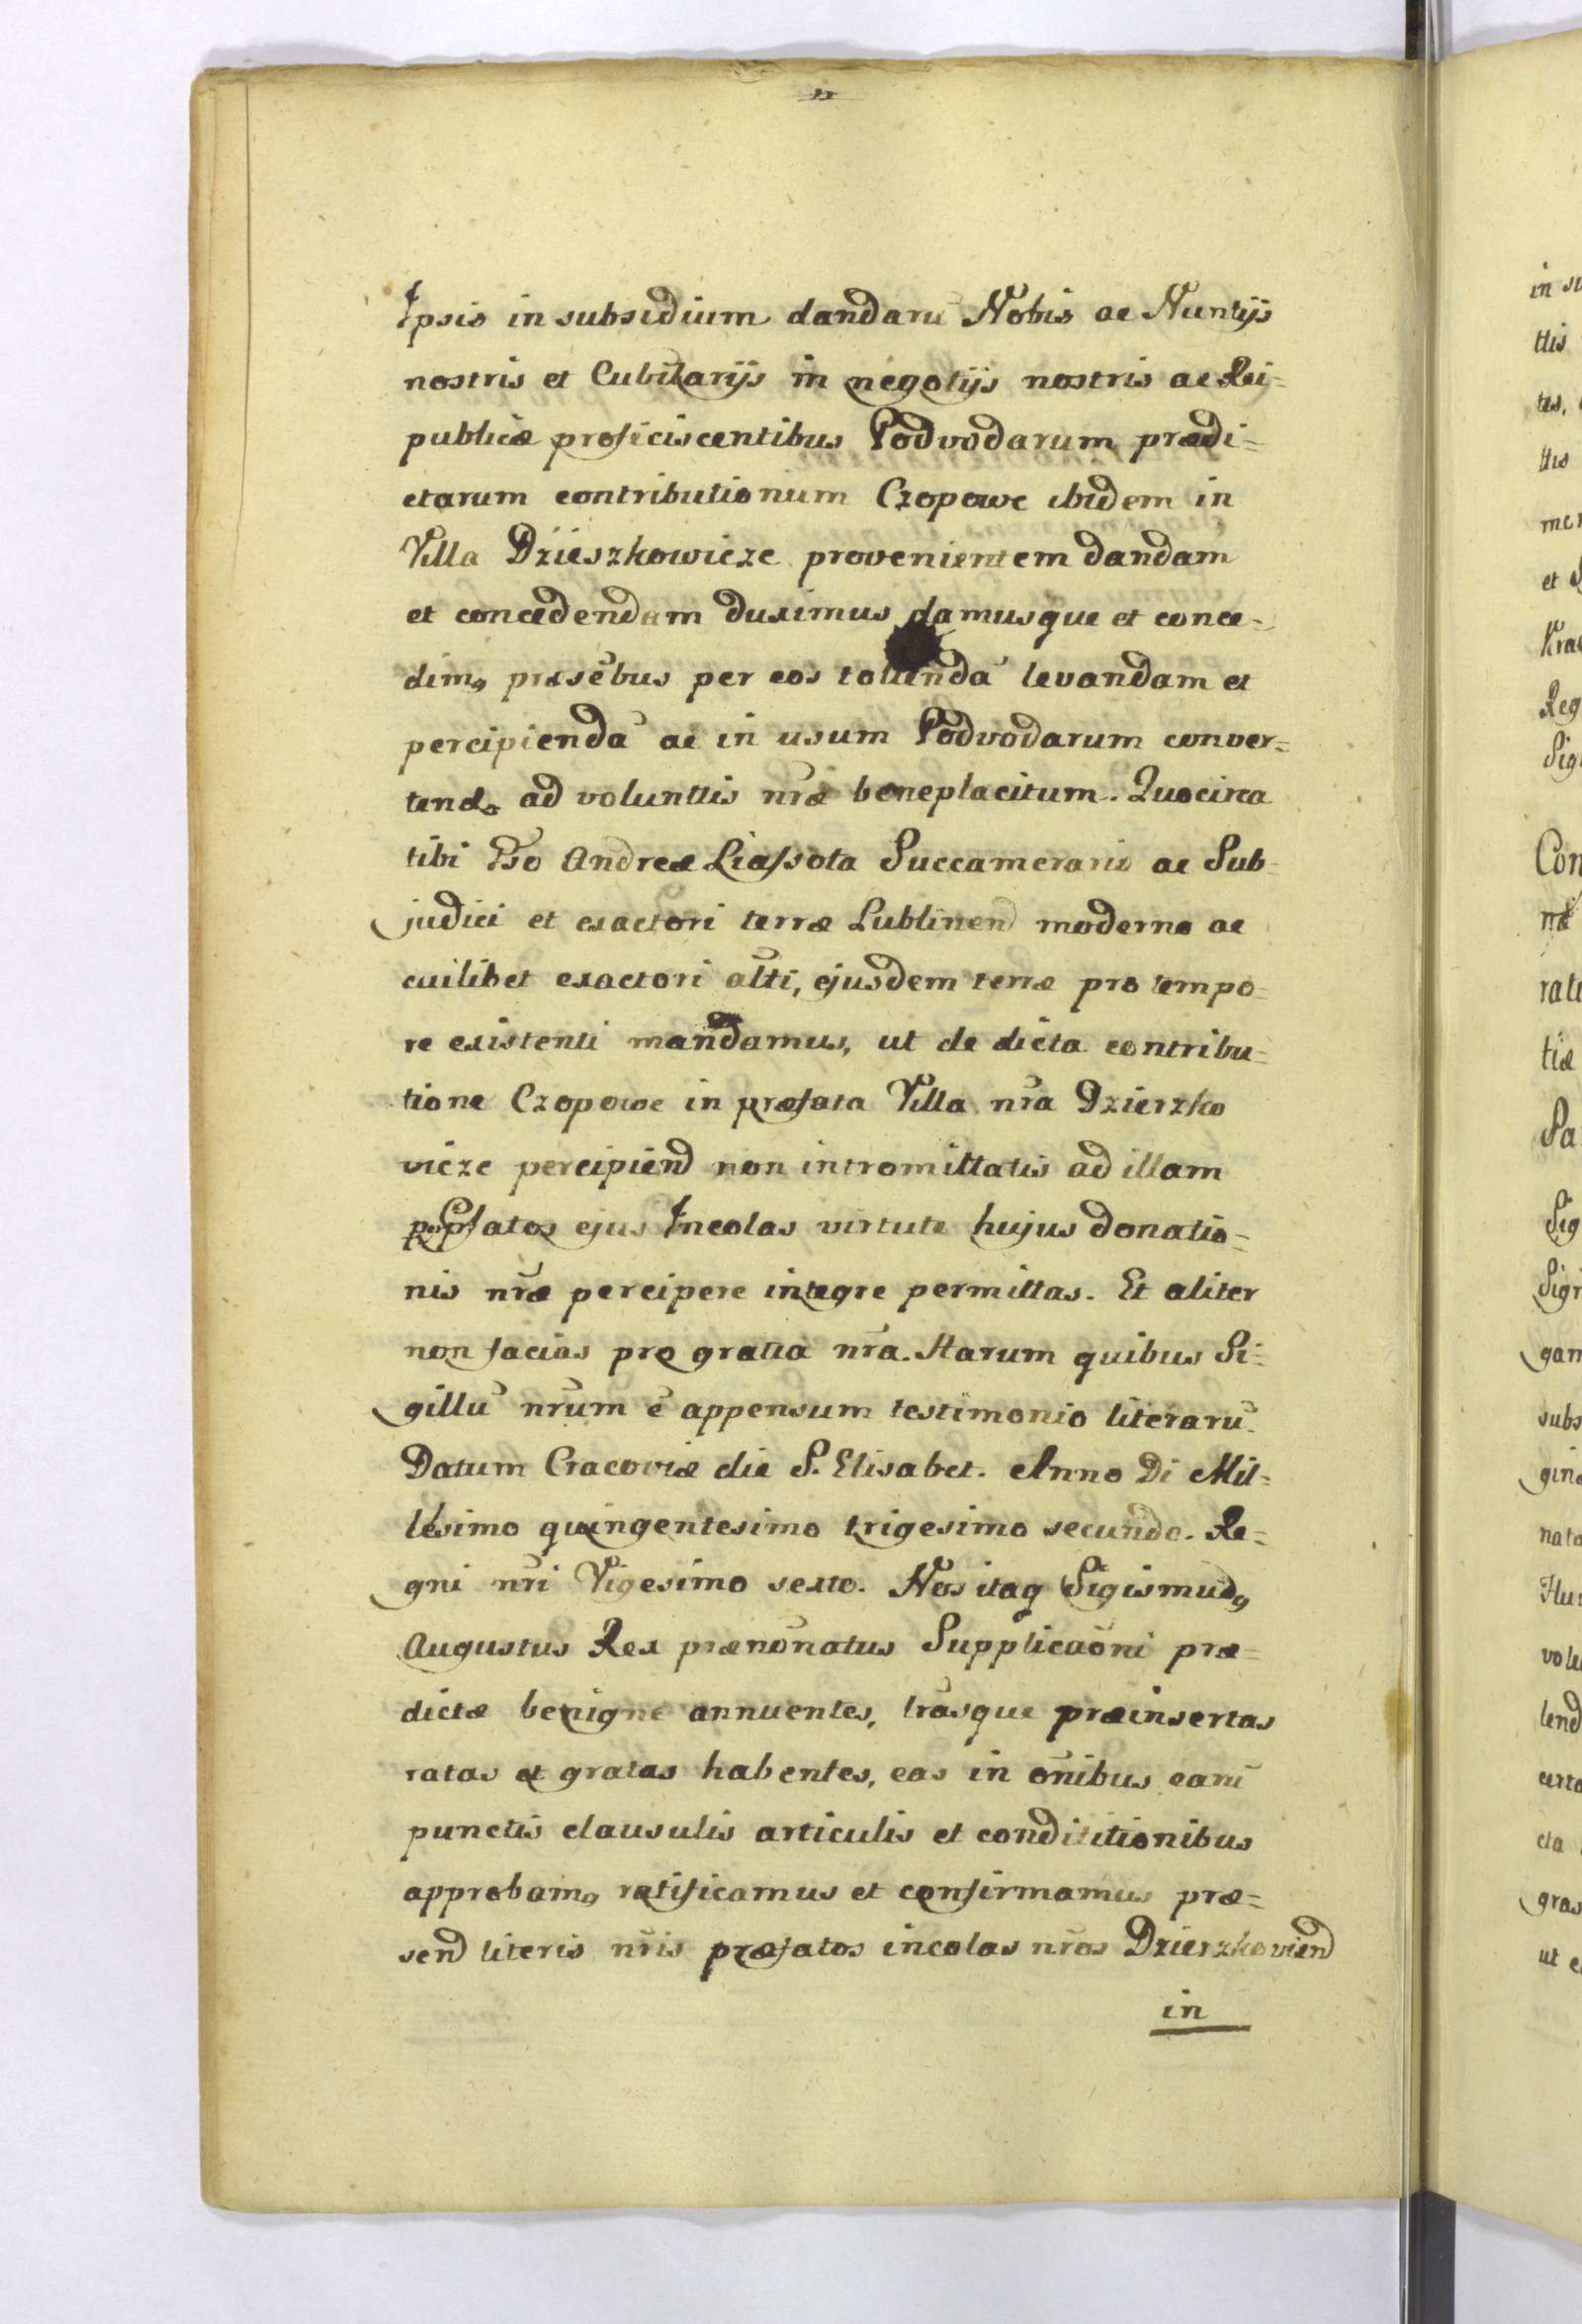 Ipsis in subsidium dandarū Nobis ac Nuntijs
nostris et Cubilarijs in negotijs nostris ac Rei=
publicæ proficiscentibus Podvodarum prædi=
ctarum contributionum Czopowe ibidem in
Villa Dzieszkowicze provenientem dandam
et concedendam duximus damusque et conce=
dimꝫ præsēbus per eos tollendā levandam et
percipiendā ac in usum Podvodarum conver=
tend ad volunttis nrǣ beneplacitum. Quocirca
tibi Andreæ Liassota Succamerario ac Sub
judici et exactori terræ Lublinend moderno ac
cuilibet exactori altī, ejusdem terræ pro tempo=
re existenti mandamus, ut de dicta contribu=
tione Czopowe in præfata Villa nr̄a Dzierzko
vicze percipiend non intromittatis ad illam
fatos ejus Incolas virtute hujus donatio=
nis nr̄æ percipere integre permittas. Et aliter
non facias pro gratia nr̄a. Harum quibus Si=
gillū nr̄um ē appensum testimonio literarū.
Datum Cracoviæ die S. Elisabet. Anno Di Mil=
lésimo quingentesimo trigesimo secundo. Re=
gni nr̄i Vigesimo sexto. Nos itaq Sigismudꝫ
Augustus Rex prænōnatus Supplicaōni præ=
dictæ benigne annuentes, lr̄asque præinsertas
ratas et gratas habentes, eas in ōnibus earū
punctis clausulis articulis et condititionibus
approbamꝫ ratificamus et confirmamus præ=
send literis nr̄is præfatos incolas nr̄os Dzierzkoviend
in
in su
ttis
tes,
ttis
mer
et
Kra
Reg
Sig
Con
ræ
rati
tiæ
Pa
Sig
Sigi
gan
subs
gin
nato
Hu
volu
lend
cta
gras
ut e